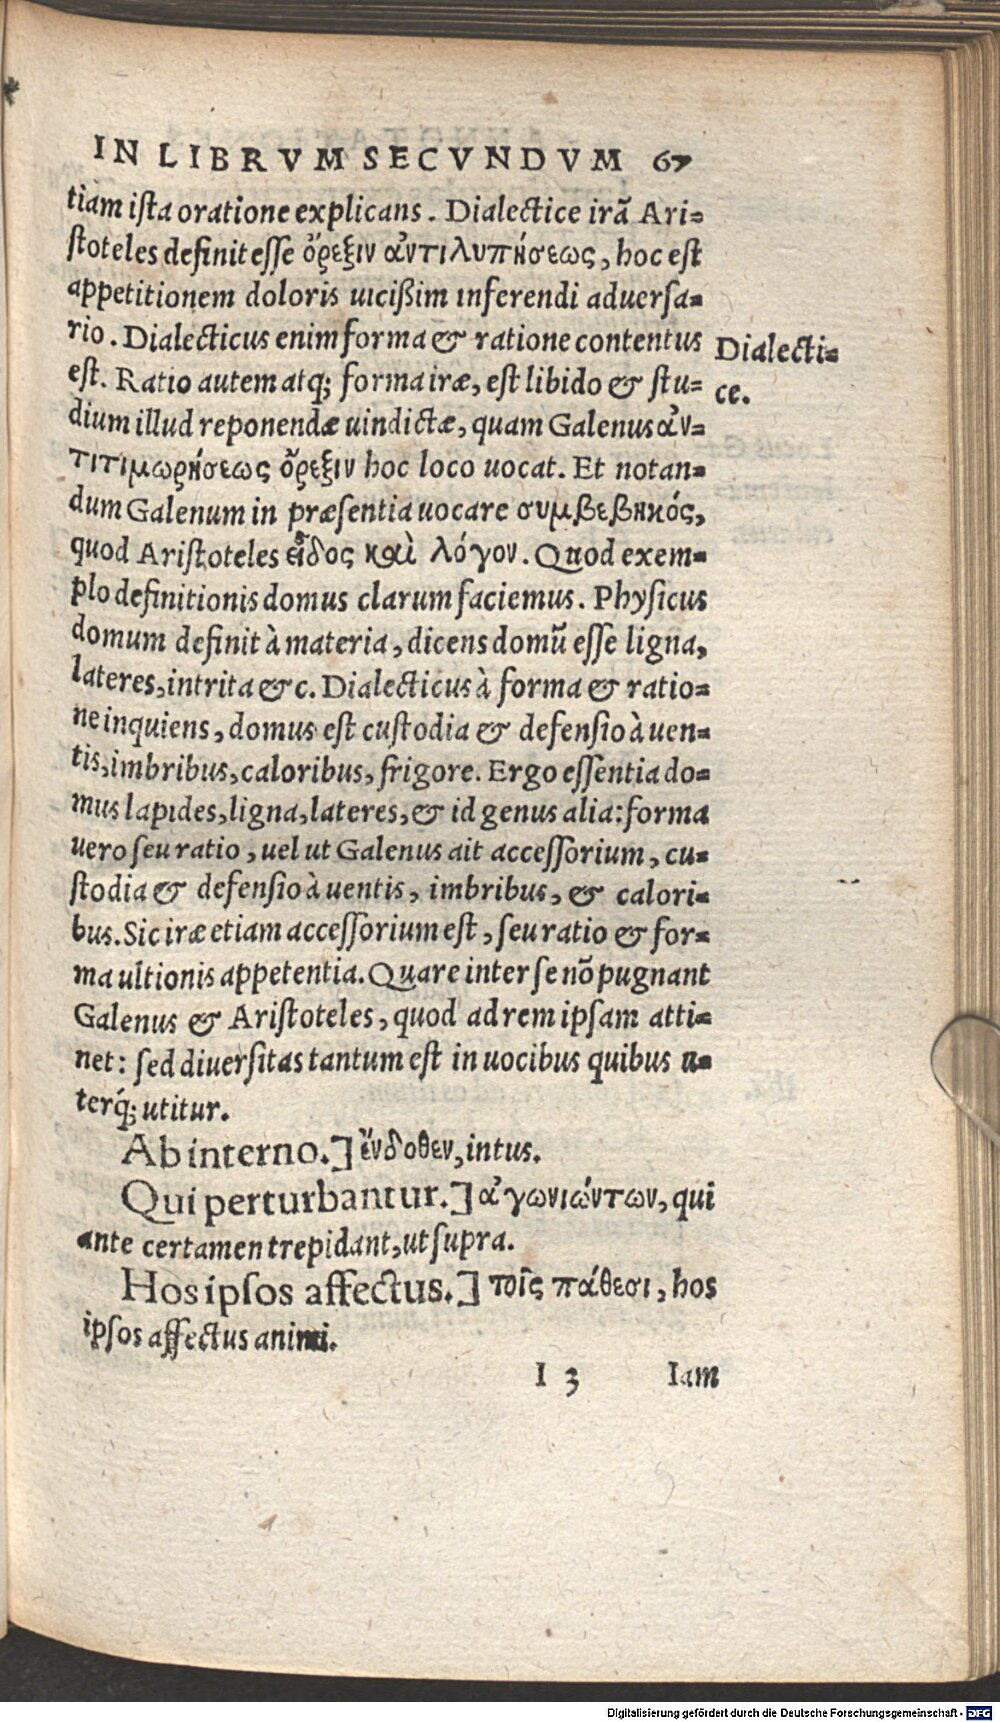 IN LIBRVM SECVNDVM 67
tiam ista oratione explicans. Dialectice irã Ari=
stoteles definit esse ὄρεξιν ἀντιλυπήσεως, hoc est
appetitionem doloris uicißim inferendi aduersa=
rio. Dialecticus enim forma & ratione contentus
est. Ratio autem atq; forma iræ, est libido & stu=
dium illud reponendæ uindictæ, quam Galenus ἀν=
τιτιμωρήσεως ὄρεξιν hoc loco uocat. Et notan=
dum Galenum in præsentia uocare συμβεβηκός,
quod Aristoteles εἶδος καὶ λόγον. Quod exem=
plo definitionis domus clarum faciemus. Physicus
domum definit à materia, dicens domũ esse ligna,
lateres, intrita &c. Dialecticus à forma & ratio=
ne inquiens, domus est custodia & defensio à uen=
tis, imbribus, caloribus, frigore. Ergo essentia do=
mus lapides, ligna, lateres, & id genus alia: forma
uero seu ratio, uel ut Galenus ait accessorium, cu=
stodia & defensio à uentis, imbribus, & calori=
bus. Sic iræ etiam accessorium est, seu ratio & for=
ma ultionis appetentia. Quare inter se nõ pugnant
Galenus & Aristoteles, quod ad rem ipsam atti=
net: sed diuersitas tantum est in uocibus quibus u=
terq́; utitur.
Dialecti=
ce.
Ab interno.] ἔνδοθεν, intus.
Qui perturbantur.] ἀγωνιώντων, qui
ante certamen trepidant, ut supra.
Hos ipsos affectus.] τοῖς πάθεσι, hos
ipsos affectus animi.
I 3 Iam
Digitalisierung gefördert durch die Deutsche Forschungsgemeinschaft - DFG